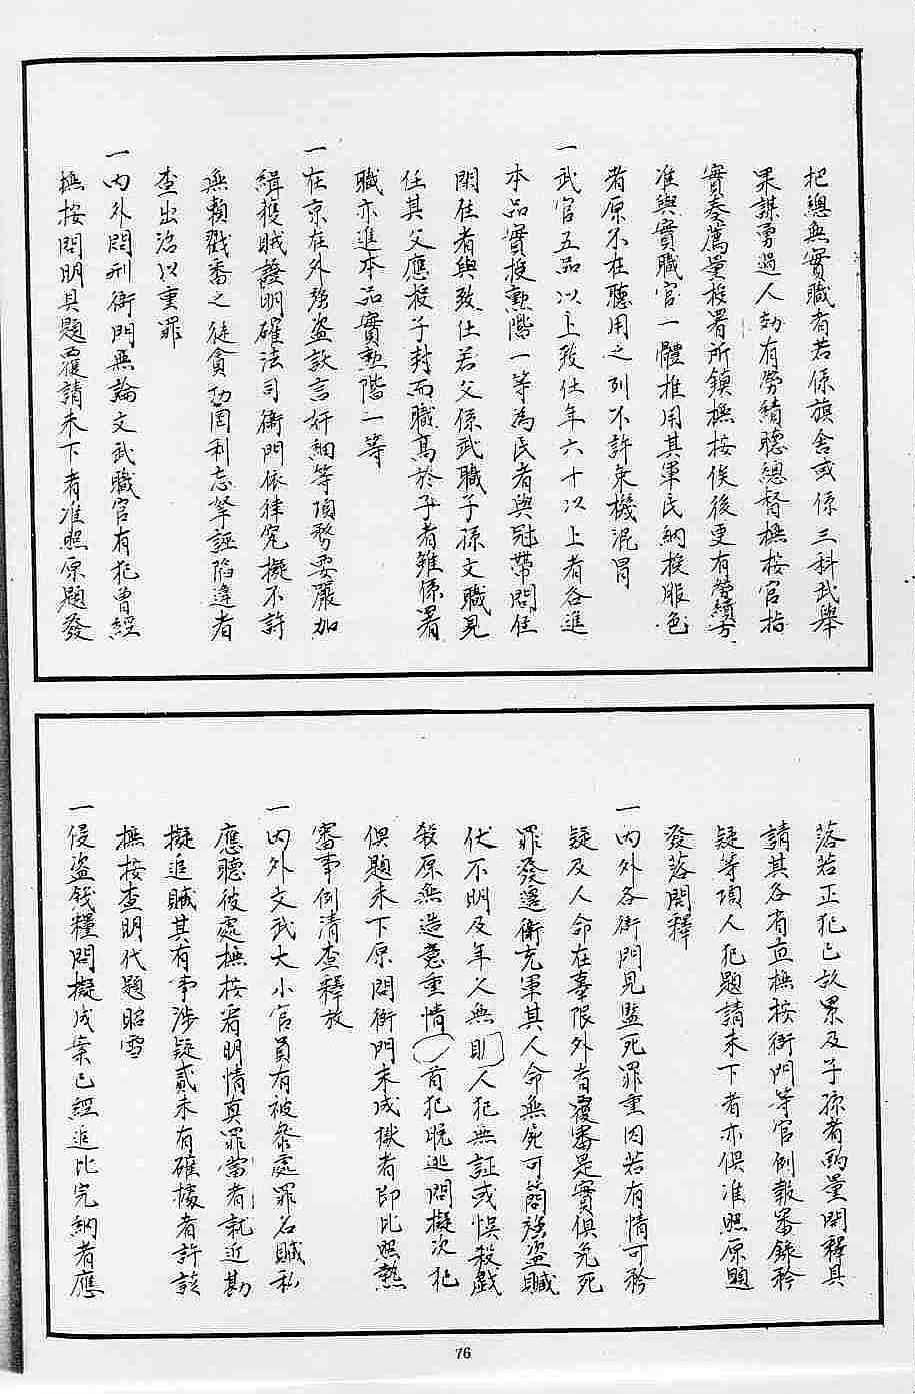 把總無實職者若係旗舍或係三科武舉
果謀勇過人効有勞績聽總督撫按官指
實奏薦量授署所鎮撫按俟後更有勞績方
准與實職官一體推用其軍民納授雜色
者原不在聽用之列不許乘機混冒
一武官五品以上致仕年六十以上者各進
本品實授勲階一等為民者與冠帶閒住
閑住者與致仕若父係武職子孫文職見
任其父應授子封而職髙於子者雖係署
職亦進本品實勲階一等
一在京在外強盗訞言奸細等項務要嚴加
緝獲賊證明確法司衙門依律究擬不許
無賴戳番之徒貪功罔利忘拏誣陷違者
查出治以重罪
一內外問刑衙門無論文武職官有犯曾經
撫按問明具題覆請未下者准照原題發
落若正犯已故累及子孫者酌量開釋其
請其各省直撫按衙門等官例報審錄矜
疑等項人犯題請未下者亦俱准照原題
發落開釋
一內外各衙門見監死罪重囚若有情可矜
疑及人命在辜限外者覆審是實俱免死
罪發邊衛充軍其人命無屍可簡強盗贓
伏不明及年久無人犯無証或悞殺戲
殺原無造意重情首犯脫逃問擬次犯
俱題未下原問衙門未成獄者即比照熱
審事例清查釋放
一內外文武大小官員有被叅處罪名贓私
應聽彼處撫按看明情真罪當者就近勘
擬追贓其有事涉疑貳未有確據者許該
撫按查明代題昭雪
一侵盗錢糧問擬成案已經追比完納者應
76